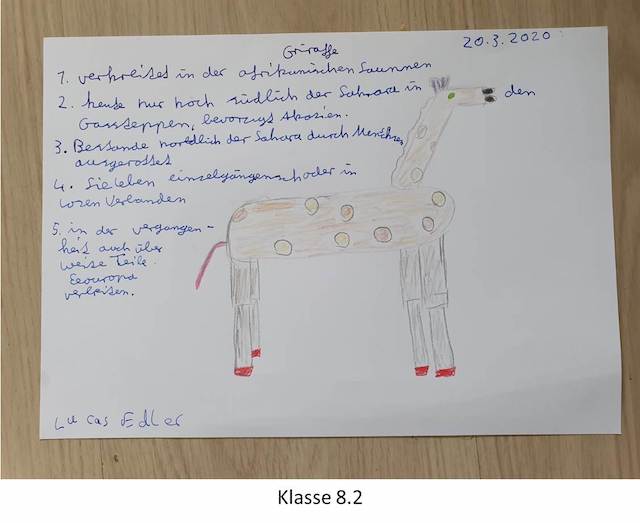 Griraffe
20.3.2020
1. verbreitet in der afrikanischen Saunnen
2. heute nur noch südlich der Sahara in den
Gassteppen, bevorzugt Akazien.
3. Bestande nordlich der Sahara durch
ausgerottet
4. Sie leben einzelgängerisch oder in
losen Verbanden
5. in der vergangen-
heit auch über
weite Teile
verbreiten.
Lucas Edler
Klasse 8.2